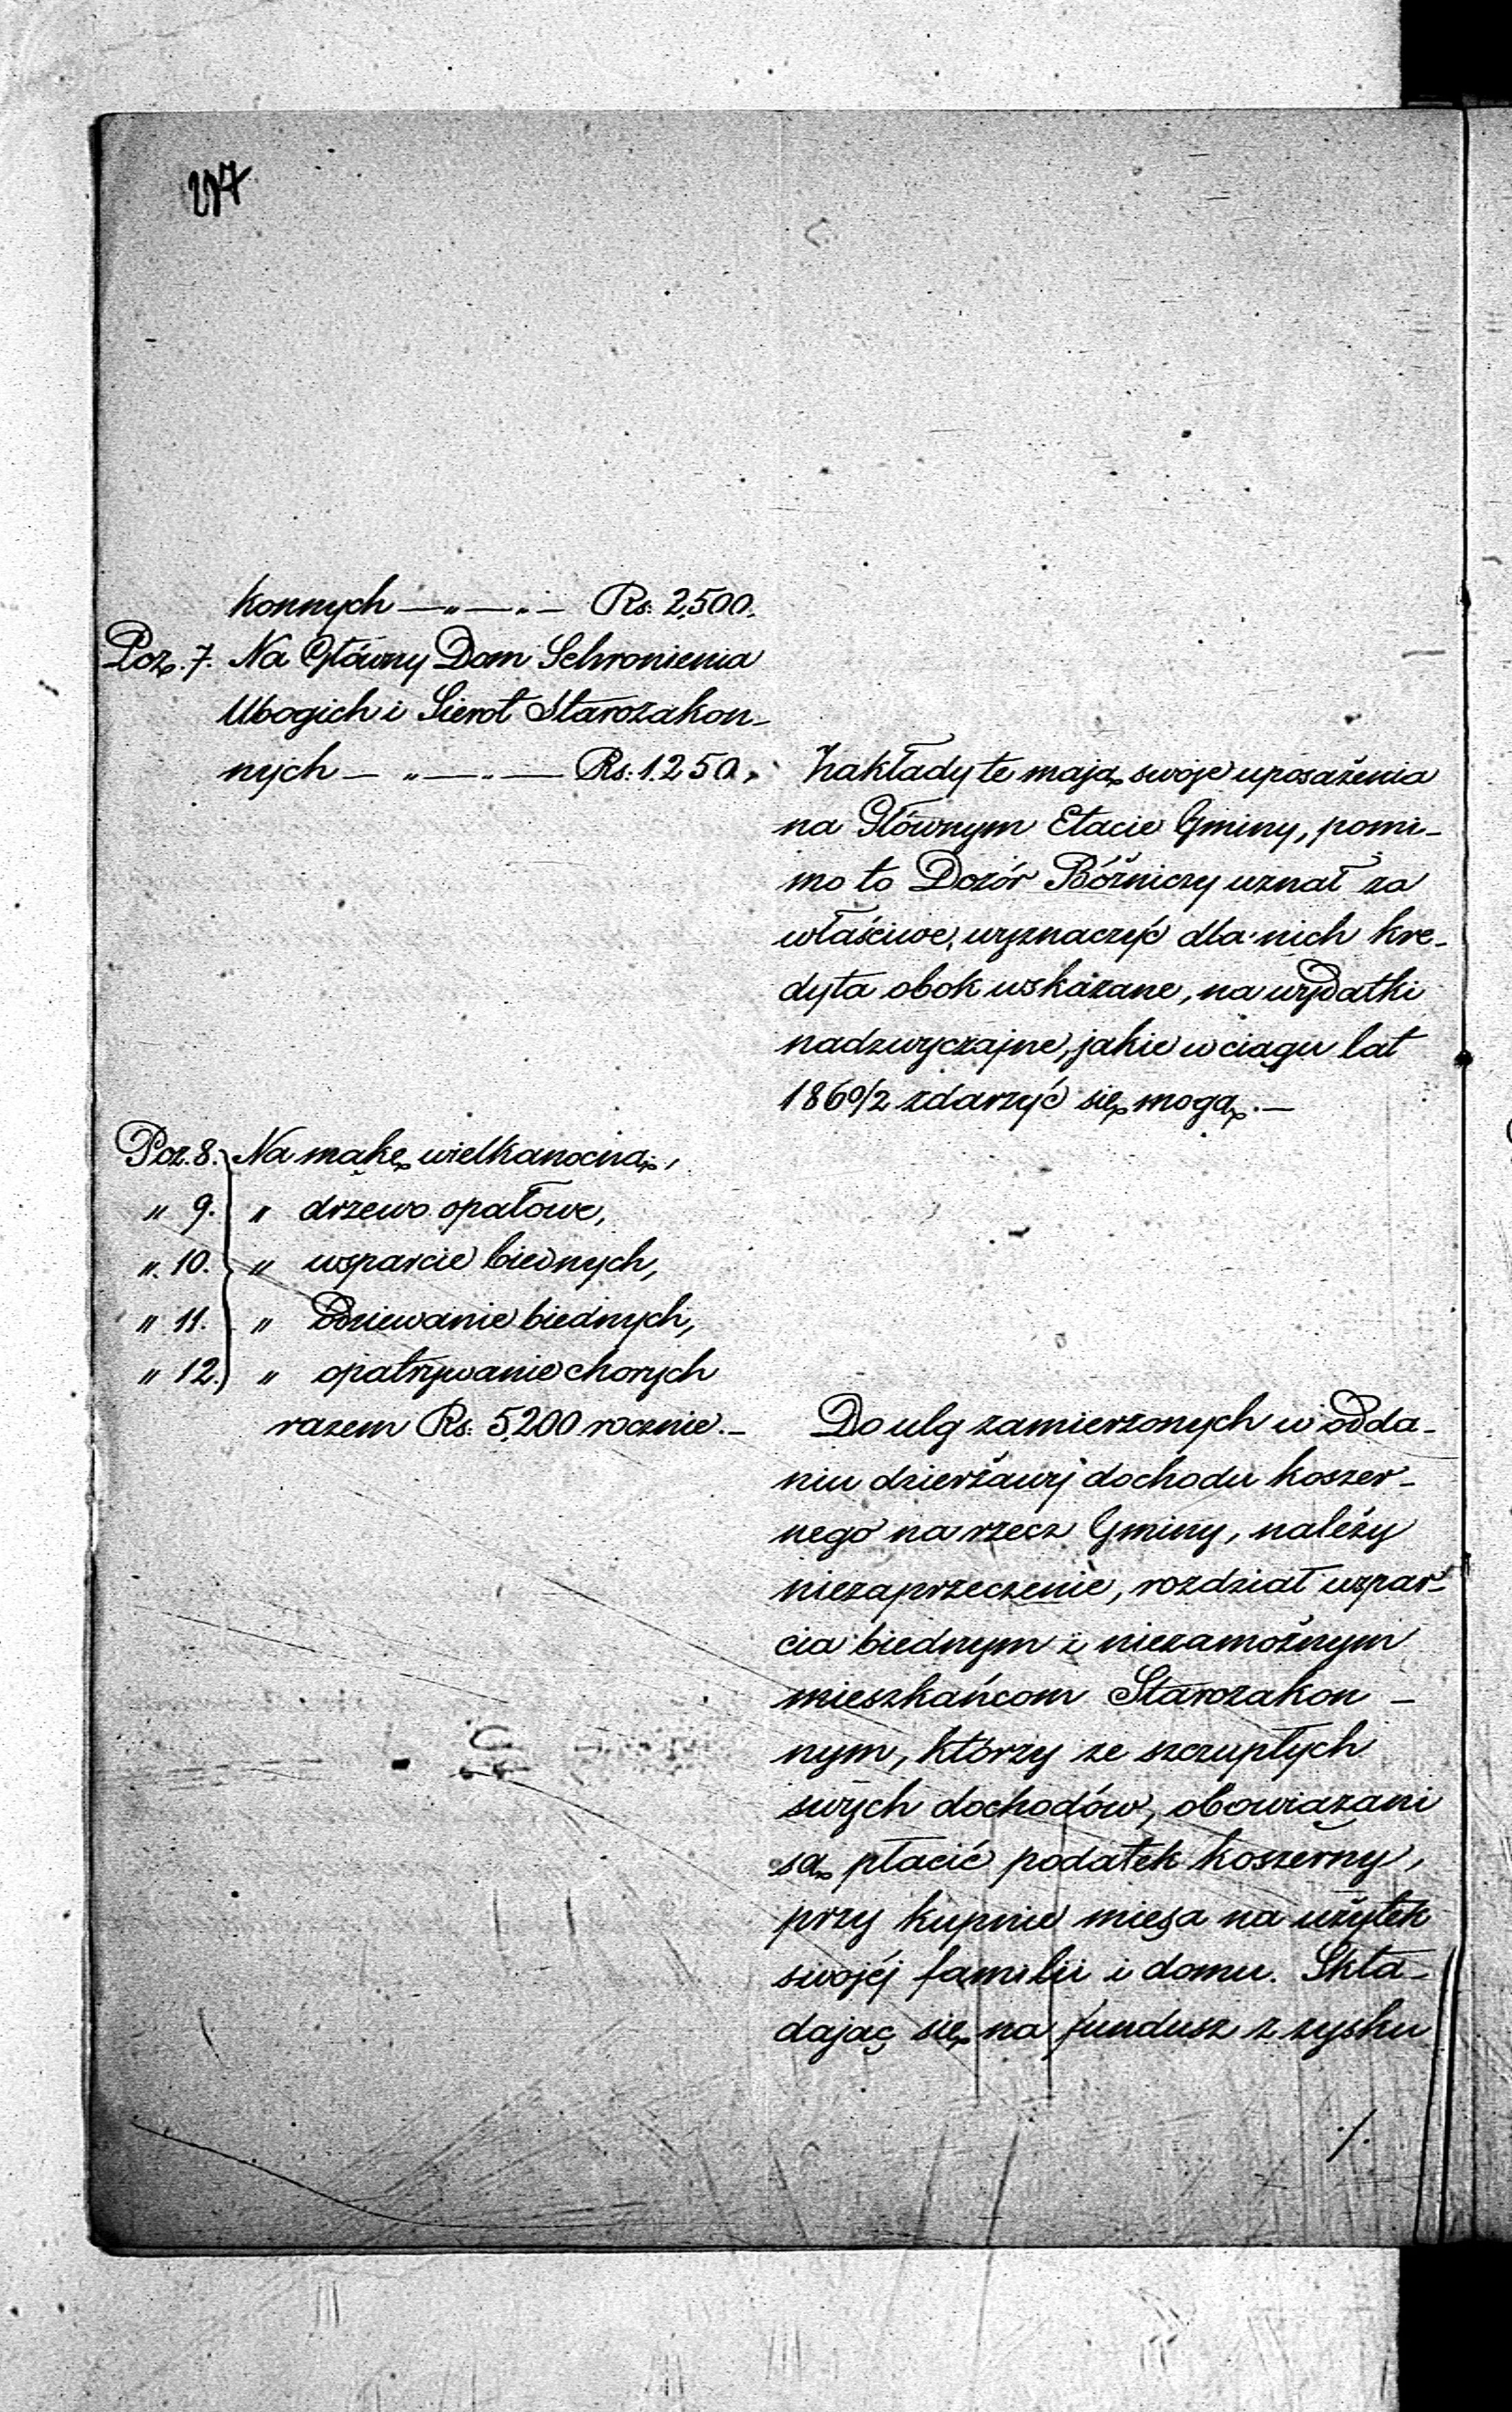 217
konnych — „ — „ — Rs: 2,500.
Poz. 7. Na Główny Dom Schronienia
Ubogich i Sierot Starozakon-
nych — „ — „ — Rs: 1.250.
Zakłady te mają swoje uposażenia
na Głównym Etacie Gminy, pomi-
mo to Dozór Bóżniczy uznał za
właściwe, wyznaczyć dla nich kre-
dyta obok wskazane, na wydatki
nadzwyczajne, jakie w ciągu lat
1860/2 zdarzyć się mogą. —
Poz. 8. Na mąkę wielkanocną,
„ 9. „ drzewo opałowe,
„ 10. „ wsparcie biednych,
„ 11. „ Odziewanie biednych,
„ 12. „ opatrywanie chorych
razem Rs: 5,200 rocznie. —
Do ulg zamierzonych w odda-
niu dzierżawy dochodu koszer-
nego na rzecz Gminy, należy
niezaprzeczenie, rozdział wspar-
cia biednym i niezamożnym
mieszkańcom Starozakon -
nym, którzy ze szczupłych
swych dochodów, obowiązani
są płacić podatek koszerny,
przy kupnie mięsa na użytek
swojéj familii i domu. Skła-
dając się na fundusz z zysku
./.